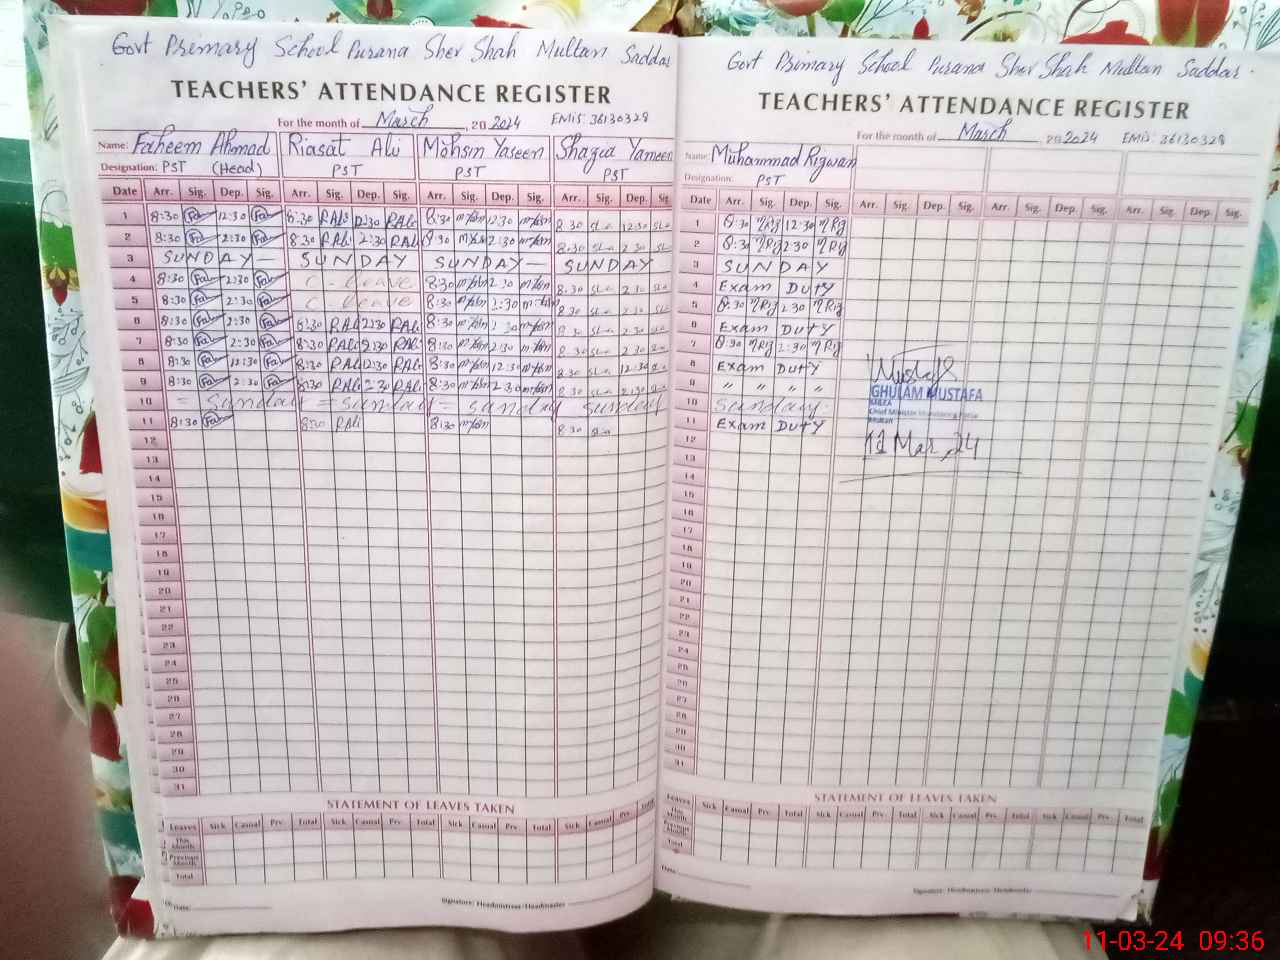 Govt Primary School Purana Sher Shah Multan Saddar
TEACHERS' ATTENDANCE REGISTER
For the month of March, 20 2024 EMIS: 36130328
Name: Faheem Ahmad Riasat Ali Mohsin Yaseen Shagua Yameen
Designation: PST (Head) PST PST PST
Date Arr. Sig. Dep. Sig. Arr. Sig. Dep. Sig. Arr. Sig. Dep. Sig. Arr. Sig. Dep. Sig
1 8:30 Fa 12:30 Fa 8:30 RAli 12:30 RAli 8:30 12:30 8 30 12 30
2 8:30 Fa 2:30 Fa 8:30 RAli 2:30 RAli 8:30 2:30 8.30 2 30
3 SUNDAY — SUNDAY SUNDAY — SUNDAY
4 8:30 Fa 2:30 Fa C - leave 8:30 2:30 8.30 2 30
5 8:30 Fa 2:30 Fa C - leave 8:30 2:30 8.30 2 30
6 8:30 Fa 2:30 Fa 8:30 RAli 2:30 RAli 8:30 2:30 8.30 2 30
7 8:30 Fa 2:30 Fa 8:30 RAli 2:30 RAli 8:30 2:30 8.30 2 30
8 8:30 Fa 12:30 Fa 8:30 RAli 12:30 RAli 8:30 12:30 8.30 12:30
9 8:30 Fa 2:30 Fa 8:30 RAli 2:30 RAli 8:30 2:30 8.30 2:30
10 = Sunday = Sunday = Sunday Sunday
11 8:30 Fa 8:30 RAli 8:30 8 30
12
13
14
15
16
17
18
19
20
21
22
23
24
25
26
27
28
29
30
31
STATEMENT OF LEAVES TAKEN
Leaves Sick Casual Prv. Total Sick Casual Prv. Total Sick Casual Prv. Total Sick Casual Prv. Total
This Month
Previous Month
Total
Date: Signature: Headmistress/Headmaster
Govt Primary School Purana Sher Shah Multan Saddar.
TEACHERS' ATTENDANCE REGISTER
For the month of March 20 2024 EMIS: 36130328
Name: Muhammad Rizwan
Designation: PST
Date Arr. Sig. Dep. Sig. Arr. Sig. Dep. Sig. Arr. Sig. Dep. Sig. Arr. Sig. Dep. Sig.
1 8:30 MRiz 12:30 MRiz
2 8:30 MRiz 2 30 MRiz
3 SUNDAY
4 Exam DUTY
5 8:30 MRiz 2:30 MRiz
6 Exam DUTY
7 8:30 MRiz 2:30 MRiz
8 Exam DUTY
9 " " " "
10 Sunday
11 Exam DUTY
12
13
14
15
16
17
18
19
20
21
22
23
24
25
26
27
28
29
30
31
Mustafa
GHULAM MUSTAFA
MEA
Chief Minister Monitoring Force
Multan
11 Mar, 24
STATEMENT OF LEAVES TAKEN
Leaves Sick Casual Prv. Total Sick Casual Prv. Total Sick Casual Prv. Total Sick Casual Prv. Total
This Month
Previous Month
Total
Date: Signature: Headmistress/Headmaster
11-03-24 09:36